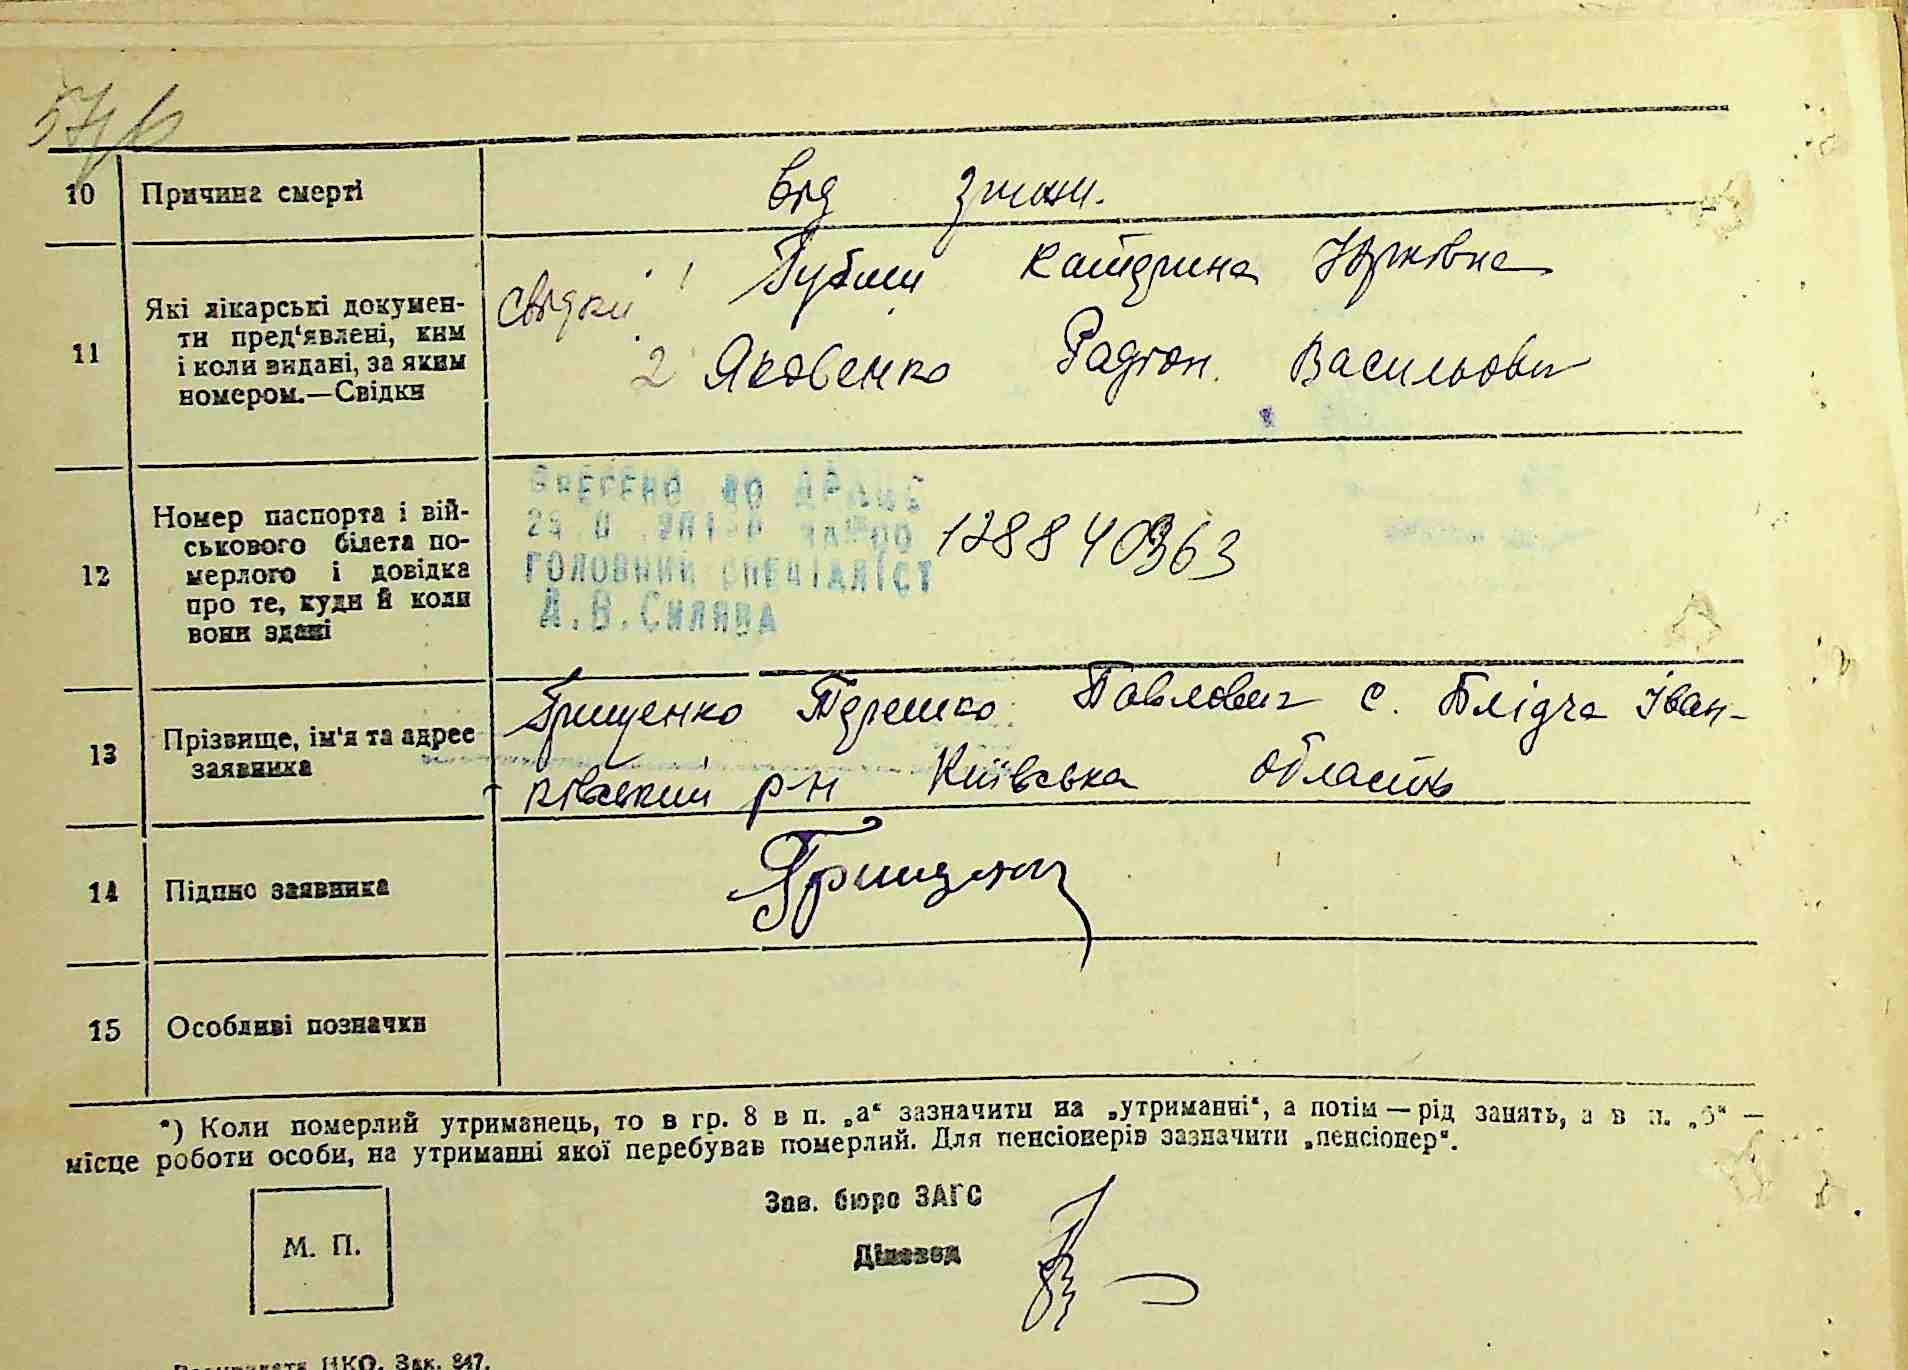 10 Причина смерті від
11 Які лікарські докумен-
ти пред'явлені, ким
і коли видані, за яким
номером.—Свідки
Свідки 1 Катерина Юрківна
2 Яковенко Радіон Васильович
12 Номер паспорта і вій-
ськового білета по-
мерлого і довідка
про те, куди й коли
вони здані
Внесено до ДРАЦС
за №00 128840363
головний спеціаліст
А.В.Силява
13 Прізвище, ім'я та адрес
заявника
Грищенко Терешко Павлович с. Блідча Іван-
ківський р-н Київська область
14 Підпис заявника
15 Особливі позначки
*) Коли померлий утриманець, то в гр. 8 в п. „а“ зазначити на „утриманні“, а потім — рід занять, а в п. „б“ —
місце роботи особи, на утриманні якої перебував померлий. Для пенсіонерів зазначити „пенсіонер“.
Зав. бюро ЗАГС
М. П.
Діловод
НКО. Зак. 847.